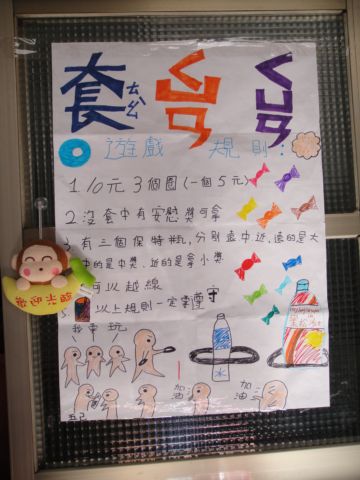 套ㄊㄠˋ ㄑㄩㄢ ㄑㄩㄢ
遊戲 規則:
1 10元 3個圈(一個5元)
2. 沒套中有安慰獎可拿
3. 有三個保特瓶,分別遠中近,遠的是大
中的是中獎.近的是拿小獎
可以越線
5. 以上規則一定要遵守
我要玩
水
加油
加油